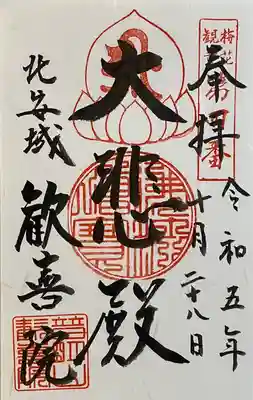 奉拝
令和五年
十月二十八日
大悲殿
北安城
歓喜院